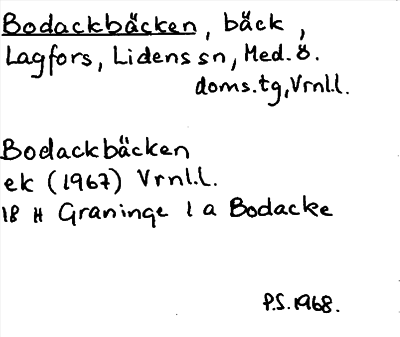 Bodackbäcken, bäck,
Lagfors, Lidens sn, Med. ö.
doms.tg, Vrnl.l.
Bodackbäcken
ek (1967) Vrnl.l.
18 H Graninge 1 a Bodacke
P.S. 1968.